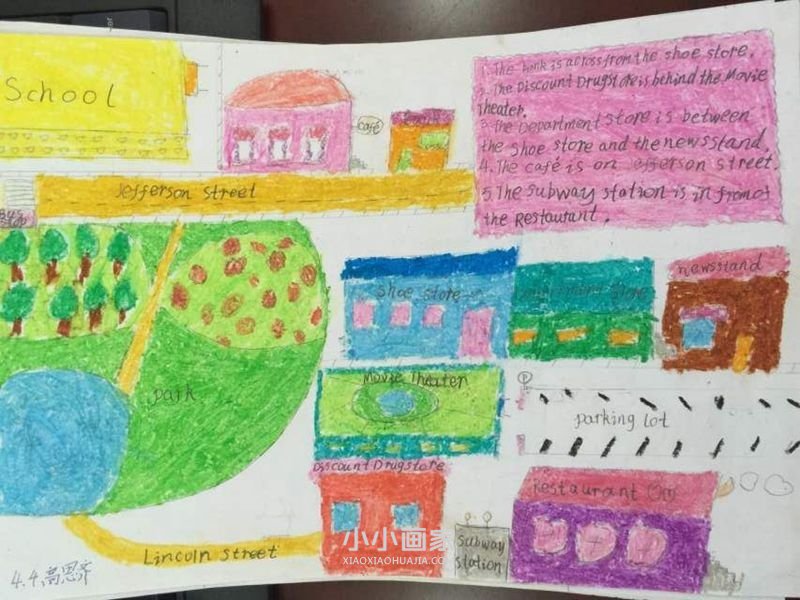 School
1. The bank is across from the shoe store.
2. The Discount Drugstore is behind the Movie
theater.
3. The Department store is between
the shoe store and the newsstand.
4. The café is on Jefferson street
5. The subway station is in front of
the Restaurant.
café
Jefferson Street
BUS
STOP
Shoe store
Department Store
newsstand
Movie Theater
park
P
parking lot
Discount Drugstore
Restaurant
Lincoln street
Subway
station
小小画家
XIAOXIAOHUAJIA.CO
4.4高思齐